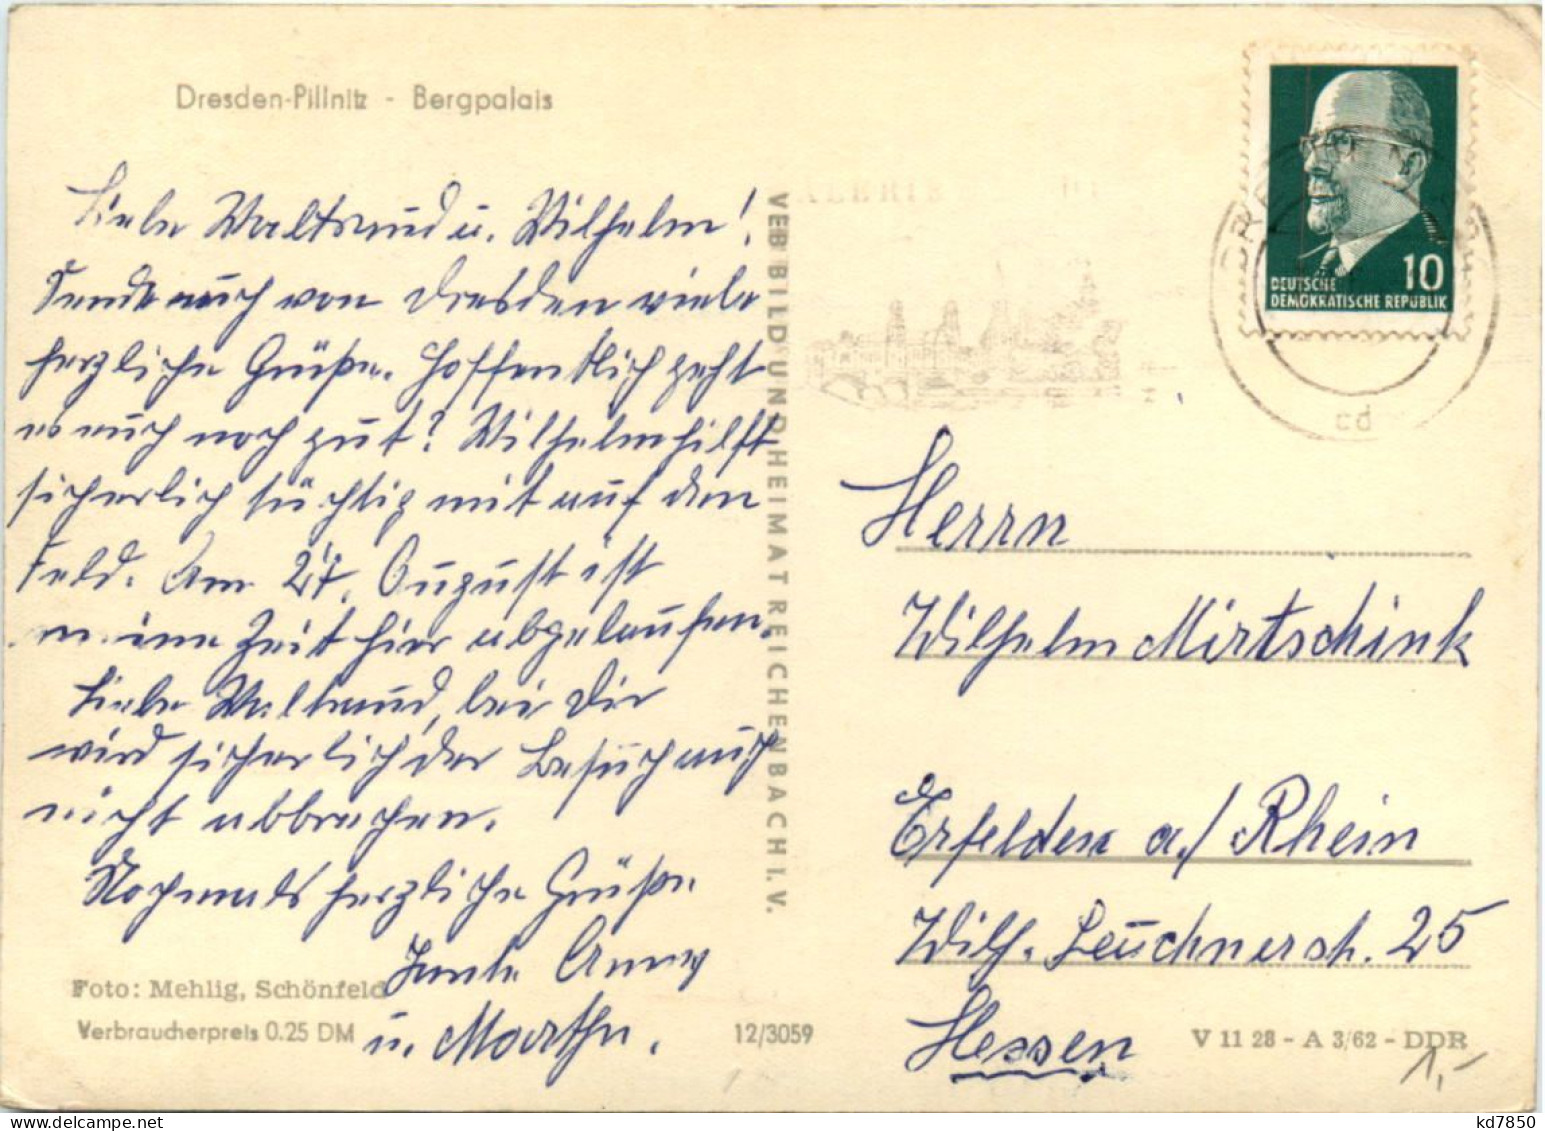 Dresden-Pillnitz - Bergpalais
Liebe Waltraud u. Wilhelm!
Sende euch von Dresden viele
herzliche Grüße. Hoffentlich geht
es euch noch gut? Wilhelm hilft
sicherlich tüchtig mit auf dem
Feld. Am 27. August ist
meine Zeit hier abgelaufen.
Liebe Waltraud, bei Dir
wird sicherlich der Besuch auch
nicht abbrechen.
Nochmals herzliche Grüße
Tante Anny
u. Marthe.
Foto: Mehlig, Schönfeld
Verbraucherpreis 0.25 DM
12/3059
VEB BILD UND HEIMAT REICHENBACH I. V.
DEUTSCHE
DEMOKRATISCHE REPUBLIK
10
cd
Herrn
Wilhelm Mirtschink
Erfelden a./Rhein
Wilh. Leuchnerstr. 25
Hessen
V 11 28 - A 3/62 - DDR
1,-
kd7850